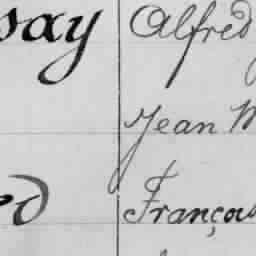 say Alfred
Jean M
ed François